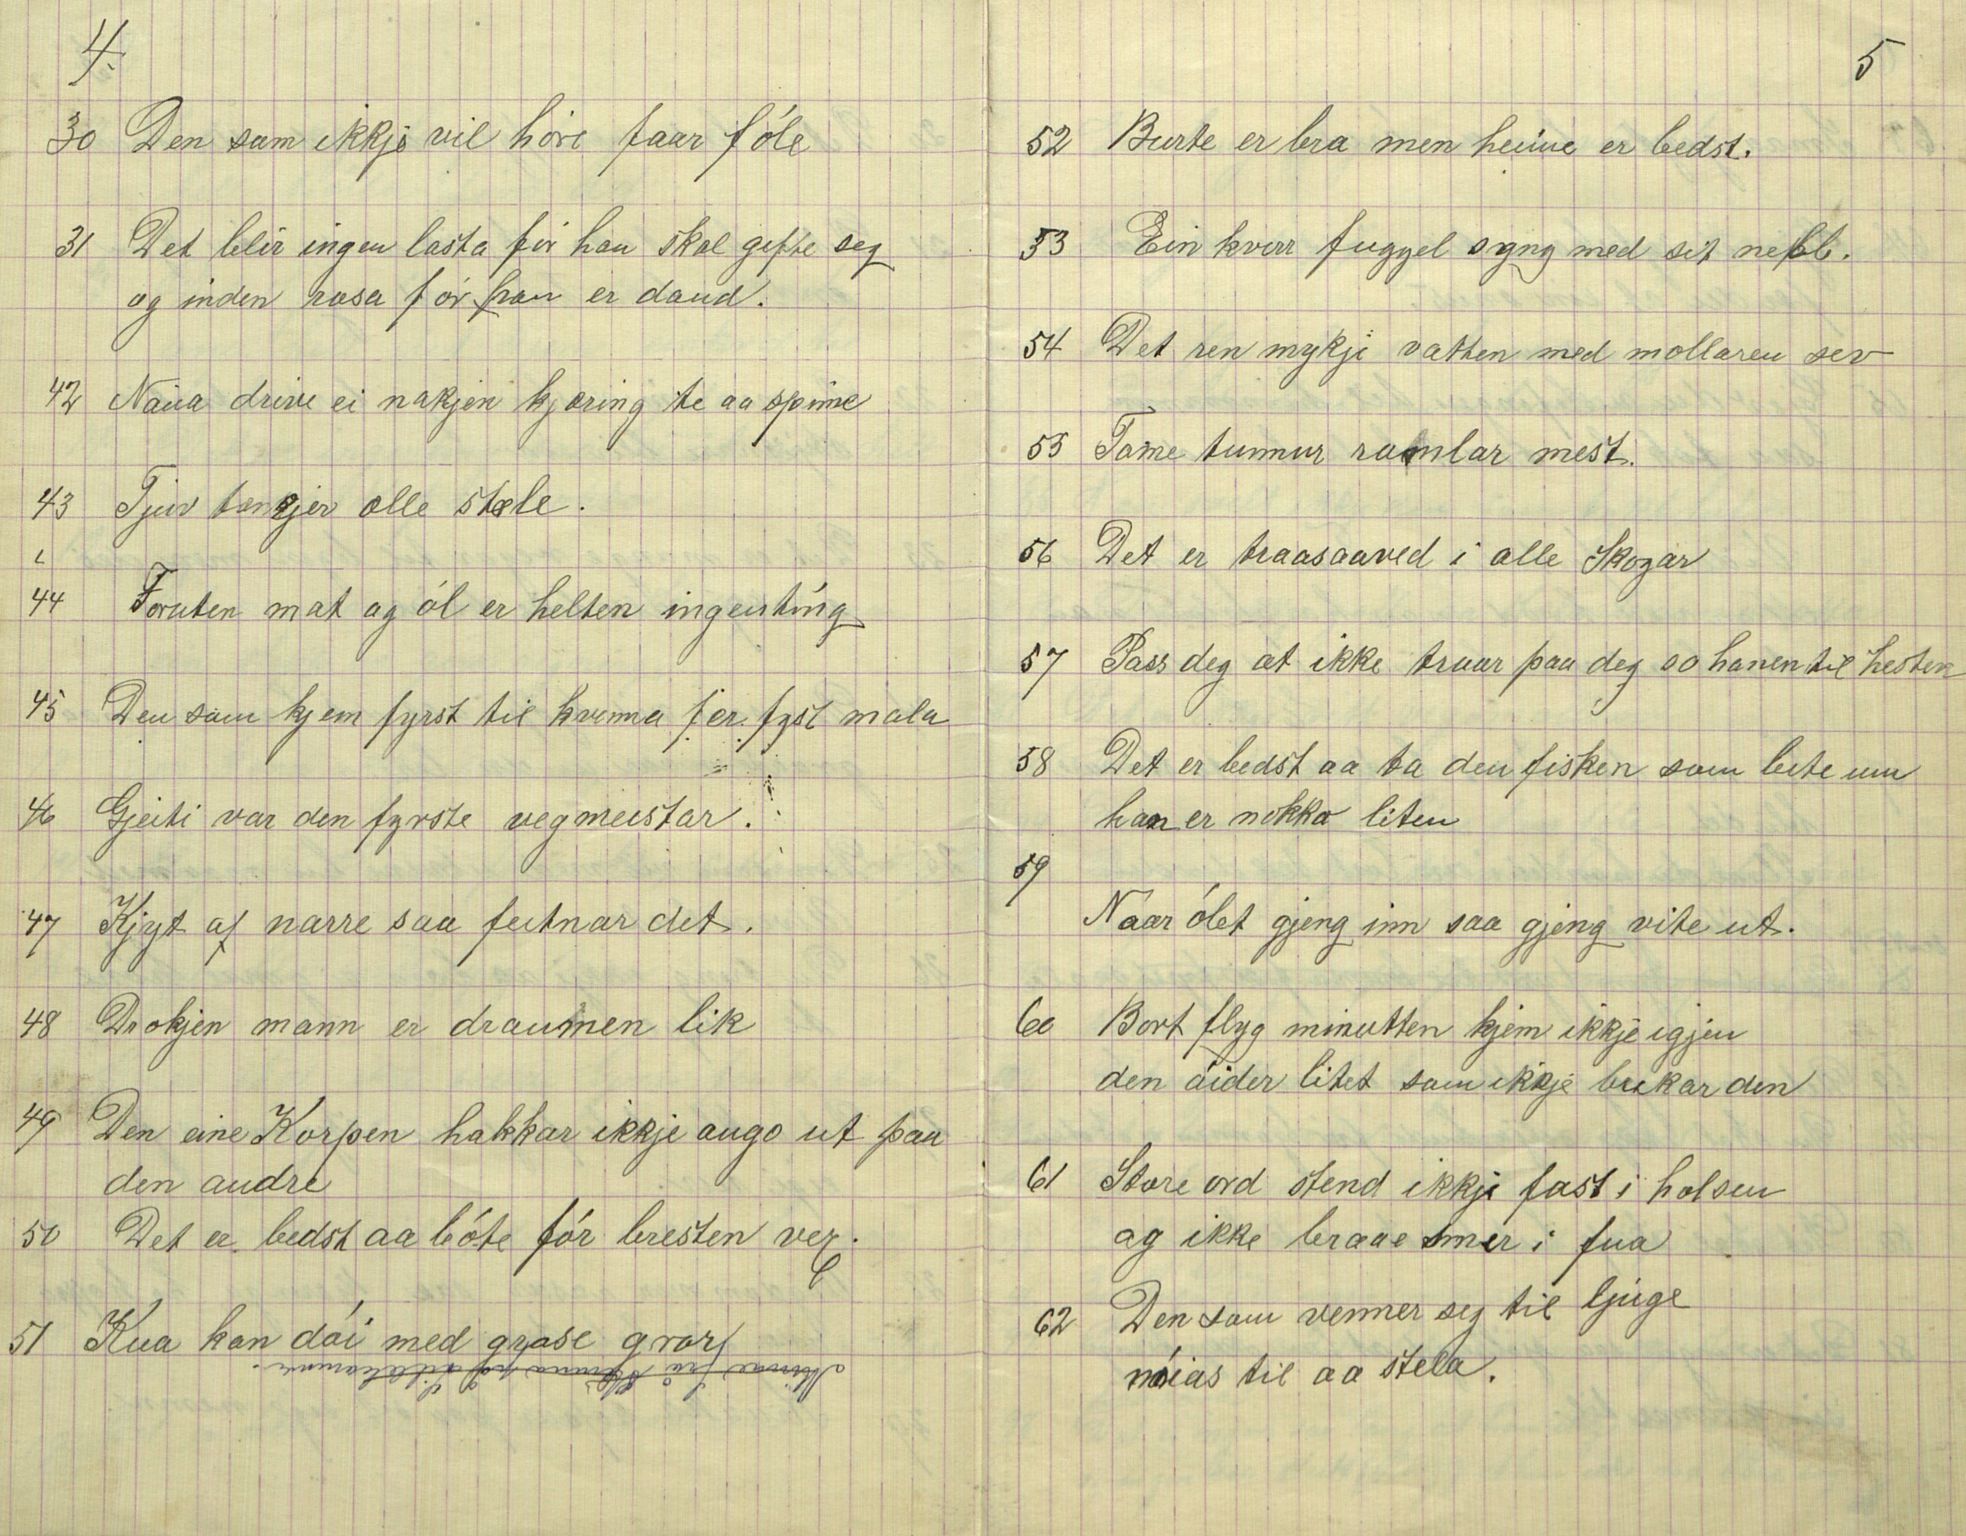 4.
30 Den som ikkje vil höre faar föle
31 Det blir ingen lasta för han skal gifte seg
og inden rosa för han er daud.
42 Naua drive ei nakjen kjæring te aa spinne
43 Tjuv tenkjer alle stæle.
44 Foruten mat og öl er helten ingenting
45 Den som kjem fyrst til kvenna fær fyst mala
46 Gjeiti var den fyrste vegmeistar.
47 Kjyt af narre saa feitnar det.
48 Drokjen mann er draumen lik
49 Den eine Korpen hakkar ikkje augo ut paa
den andre
50 Det er bedst aa böte för bresten ver.
51 Kua kan döi med grase gror
5
52 Burte er bra men heime er bedst.
53 Ein kverr fuggel syng med sit nebb.
54 Det ren mykje vatten med mollaren sev
55 Tome tunnur ramlar mest.
56 Det er traasaaved i alle Skogar
57 Pass deg at ikke truar paa deg so hanen til hesten
58 Det er bedst aa ta den fisken som beite um
han er nokko liten
59
Naar ölet gjeng inn saa gjeng vite ut.
60 Bort flyg minutten kjem ikkje igjen
den öider litet som ikkje brukar den
61 Store ord stend ikkje fast i halsen
og ikke braae smer i fua
62 Den som venner seg til ljuge
nöias til aa stela.